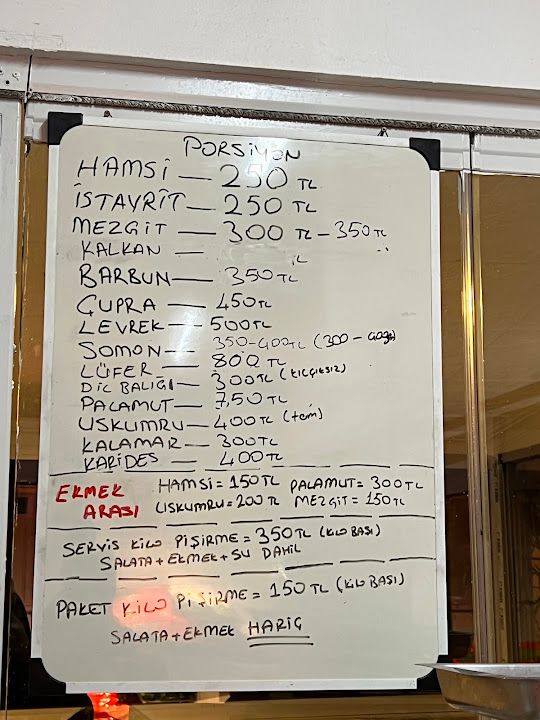 PORSİYON
HAMSİ — 250 TL
İSTAVRİT — 250 TL
MEZGİT — 300 TL - 350 TL
KALKAN —
BARBUN — 350 TL
ÇUPRA — 450 TL
LEVREK — 500 TL
SOMON — 350-400 TL (300 -
LÜFER — 800 TL
DİL BALIĞI — 300 TL (KILÇIKSIZ)
PALAMUT — 750 TL
USKUMRU — 400 TL (tam)
KALAMAR — 300 TL
KARİDES — 400 TL
EKMEK ARASI
HAMSİ = 150 TL PALAMUT = 300 TL
USKUMRU = 200 TL MEZGİT = 150 TL
SERVİS KİLO PİŞİRME = 350 TL (KİLO BAŞI)
SALATA + EKMEK + SU DAHİL
PAKET KİLO PİŞİRME = 150 TL (KİLO BAŞI)
SALATA + EKMEK HARİÇ